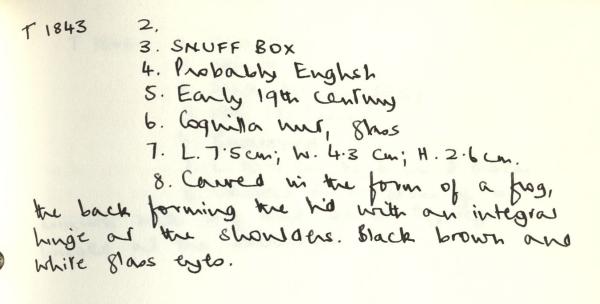 T 1843 2.
3. SNUFF BOX
4. Probably English
5. Early 19th century
6. Coquilla nut, glass
7. L. 7.5cm; W. 4.3 cm; H. 2.6cm.
8. Carved in the form of a frog,
the back forming the lid with an integral
hinge at the shoulders. Black brown and
white glass eyes.